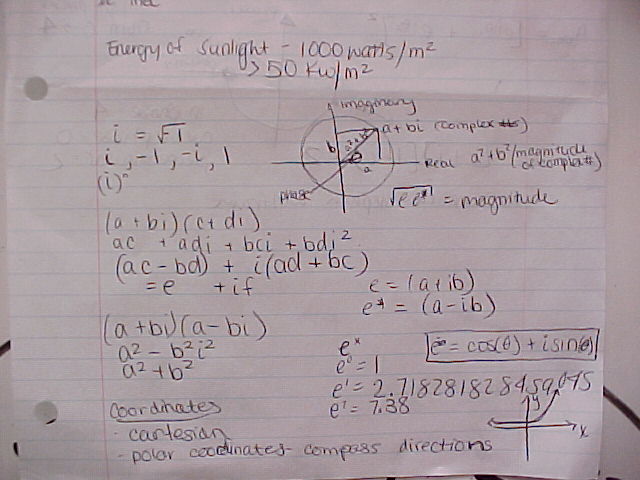 Energy of Sunlight - 1000 watts/m²
> 50 KW/m²
imaginary
a + bi (complex #s)
i = √1
i, -1, -i, 1
(i)ⁿ
b
a
Real
a² + b² (magnitude of complex #)
phase
√ee* = magnitude
(a + bi)(c + di)
ac + adi + bci + bdi²
(ac - bd) + i(ad + bc)
= e + if
e = (a + ib)
e* = (a - ib)
(a + bi)(a - bi)
a² - b²i²
a² + b²
eˣ
e⁰ = 1
e¹ = 2.718281828459045
e² = 7.38
= cos(θ) + i sin(θ)
y
x
Coordinates
- cartesian
- polar coordinates - compass directions